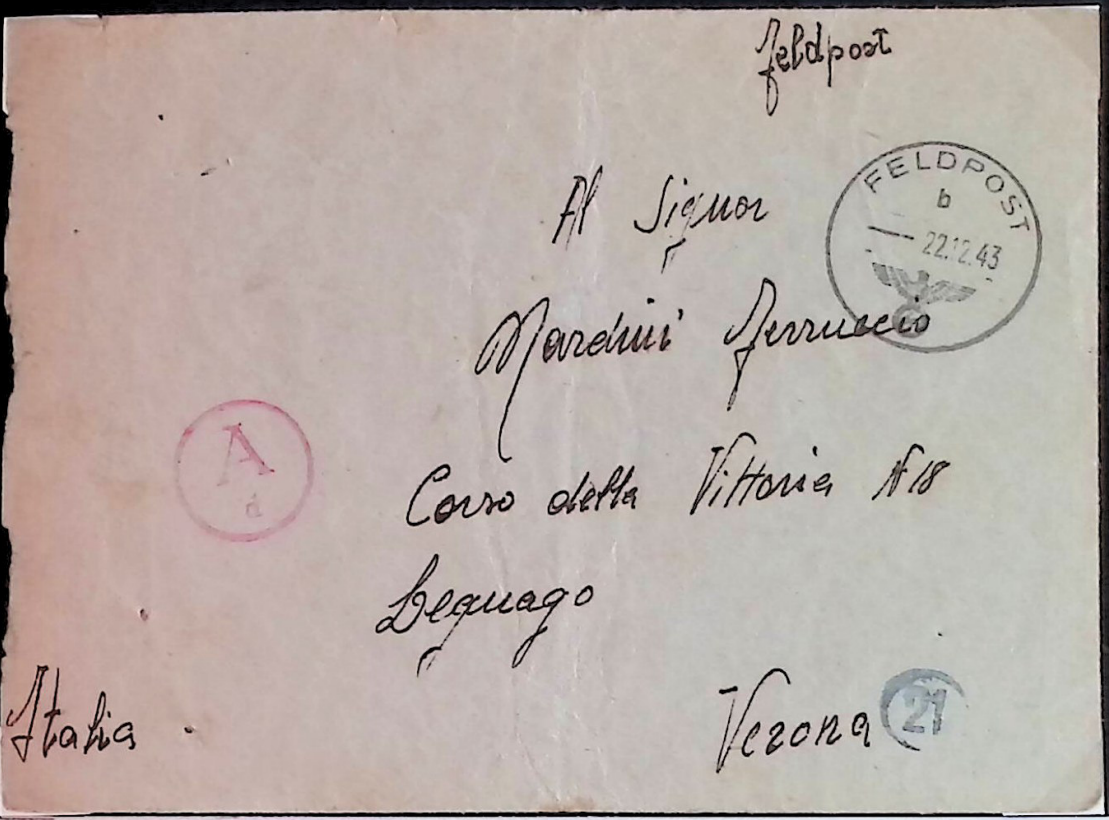 Feldpost
FELDPOST
b
22.12.43
Al Signor
Nardini Ferruccio
A
d
Corso della Vittoria N 18
Legnago
Italia
Verona
21